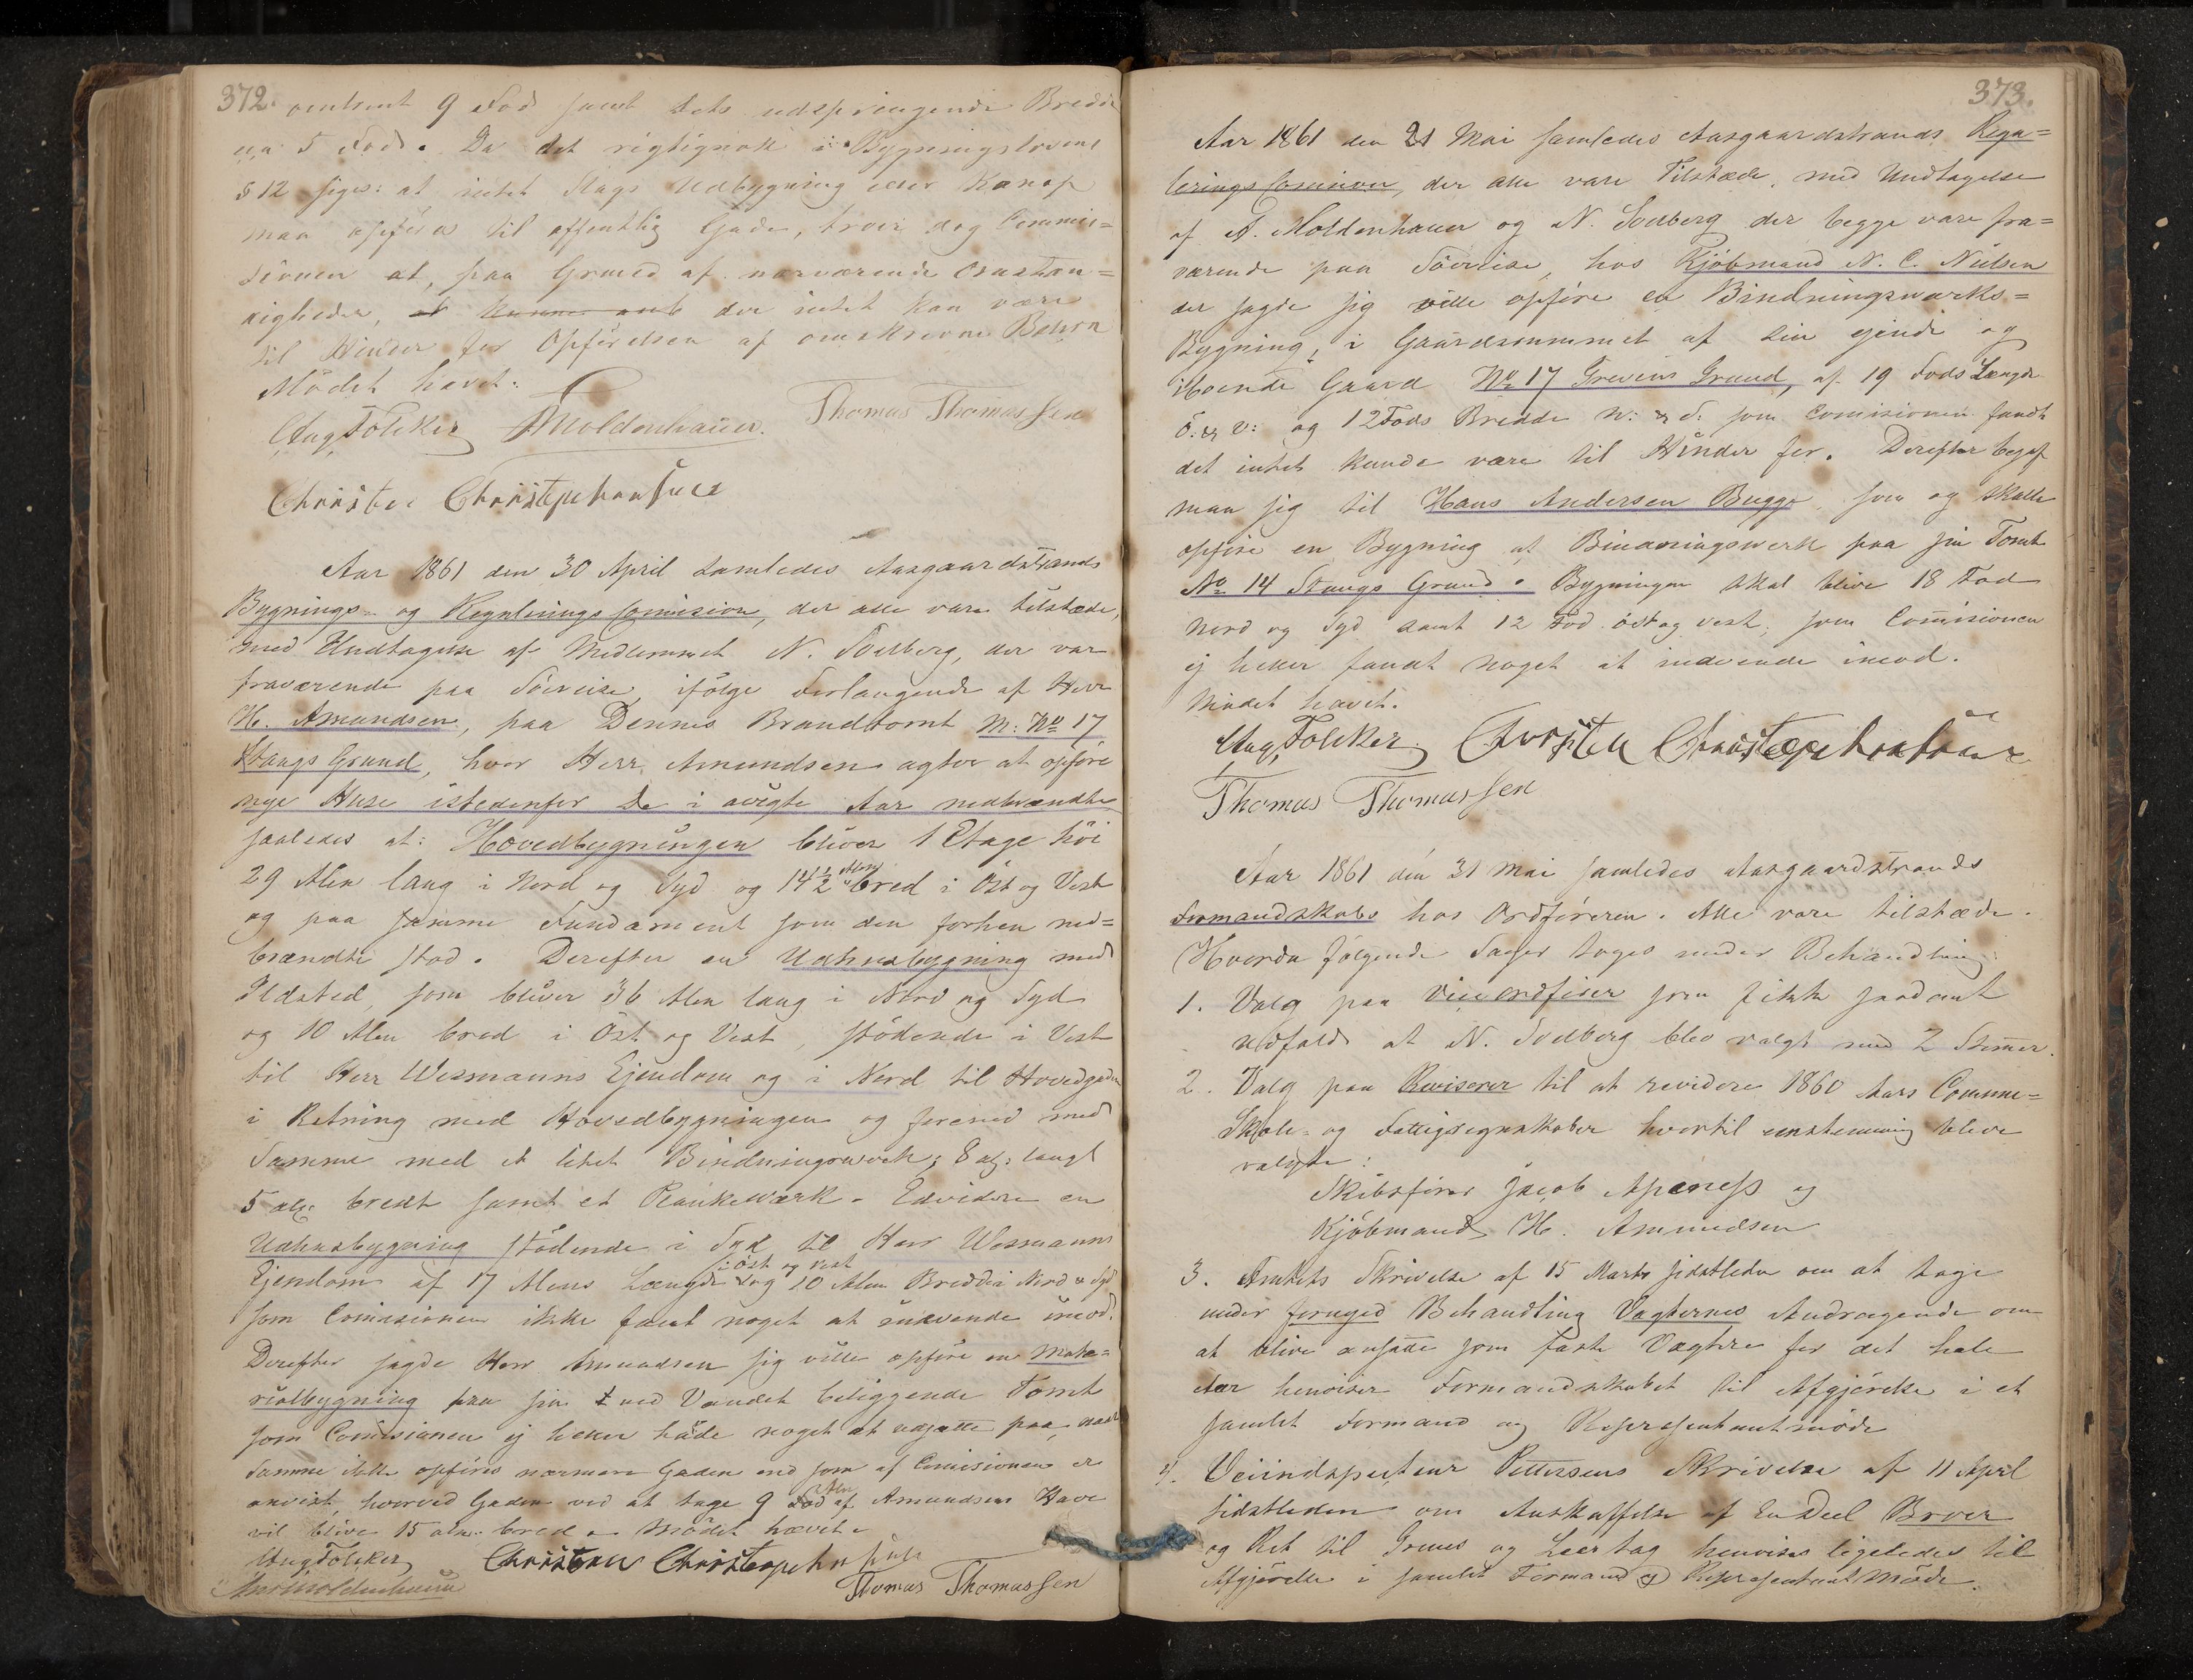 372.
omtrent 9 Fod samt dets udspringende Bredde
ca 5 Fod. Da det rigtignok i Bygningslovens
§ 12 siges: at intet Slags Udbygning eller Karnap
maa opføres til offentlig Gade, troer dog Commis=
sionen at, paa Grund af nærværende Omstæn=
digheder, der intet kan være
til Hinder for Opførelsen af omskrevne
Mödet hævet.
Aug Fölcker AMoldenhauer. Thomas Thomassen
Christen Christophersen
Aar 1861 den 30 April samledes Aasgaardstrands
Bygnings- og Reguleringscomision, der alle vare tilstæde,
med Undtagelse af Medlemmet N. Sodberg, der var
fraværende paa Söereise, ifölge Forlangende af Herr
H. Amundsen, paa Dennes Brandtomt M: No 17
Stangs Grund, hvor Herr Amundsen agter at opföre
nye Huse istedenfor De i avigte Aar nedbrændte
saaledes at: Hovedbygningen bliver 1 Etage höi
29 Alen lang i Nord og Syd og 14½ Alen bred i Öst og Vest
og paa samme Fundament som den forhen ned=
brændte stod. Derefter en Udhusbygning med
Ildsted, som bliver 36 Alen lang i Nord og Syd
og 10 Alen bred i Öst og Vest, stödende i Vest
til Herr Wesmanns Ejendom og i Nord til Hovedgaden
i Retning med Hovedbygningen og forened med
Samme med et litet Bindningsverk; 8 al: langt
5 al: bredt samt et Plankeværk. Endvidere en
Udhusbygning stödende i Syd til Herr Wesmanns
Ejendom af 17 Alens Længde i öst og vest og 10 Alen Bredde i Nord & Syd
som Comisionen ikke fant noget at indvende imod.
Derefter sagde Herr Amundsen sig ville opföre en Mate=
rialbygning paa sin ved Vandet beliggende Tomt
som Comisionen ej heller hade noget at udsætte paa, naar
Samme ikke opföres nærmere Gaden end som af Comisionen er
anvist, hvorved Gaden ved at tage 9 Alen af Amundsens Have
vil blive 15 alen bred. Mödet hævet.
Aug Fölcker Christen Christophersen
AMoldenhauer Thomas Thomassen
373.
Aar 1861 den 21 Mai samledes Aasgaardstrands Regu=
leringscomision, der alle vare Tilstæde, med Undtagelse
af A. Moldenhauer og N. Sodberg der begge vare fra=
værende paa Söereise, hos Kjöbmand N. C. Nielsen
der sagde sig ville opföre en Bindningsværks=
Bygning, i Gaardsrummet af sin ejende og
iboende Gaard No 17 Grevens Grund, af 19 Fods Længde
ö. & v: og 12 Fods Bredde n: & s: som Comisionen fandt
det intet kunde være til Hinder for. Derefter begaf
man sig til Hans Andersen Bugge, som og skulle
opföre en Bygning af Bindningswerk paa sin Tomt
No 14 Stangs Grund. Bygningen skal blive 18 Fod
Nord og Syd samt 12 Fod öst og vest, som Comisionen
ej heller fandt noget at indvende imod.
Mödet hævet.
Aug. Fölcker Christen Christophersen
Thomas Thomassen
Aar 1861 den 31 Mai samledes Aasgaardstrands
Formandskabs hos Ordföreren. Alle vare tilstæde.
Hvorda fölgende Sager toges under Behandling:
1. Valg paa Viceordförer som fikk saadant
udfald at N. Sodberg blev valgt med 2 Stemmer.
2. Valg paa Revisorer til at revidere 1860 Aars Commune=
Skole- og Fattigregnskaber hvortil enstemmig bleve
valgte:
Skibsförer Jacob Apenæss og
Kjöbmand H. Amundsen
3. Amtets Skrivelse af 15 Marts sidstleden om at tage
under fornyed Behandling Vægternes Andragende om
at blive ansatte som faste Vægtere for det hele
Aar henviser Formandskabet til Afgjörelse i et
samlet Formand og Repræsentantmöde
4. Veiindspecteur Pettersens Skrivelse af 11 April
sidstleden om Anskaffelse af En Deel Broer
og Ret til Gruus og Leertag henvises ligeledes til
Afgjörelse i samlet Formand og RepræsentantMöde.